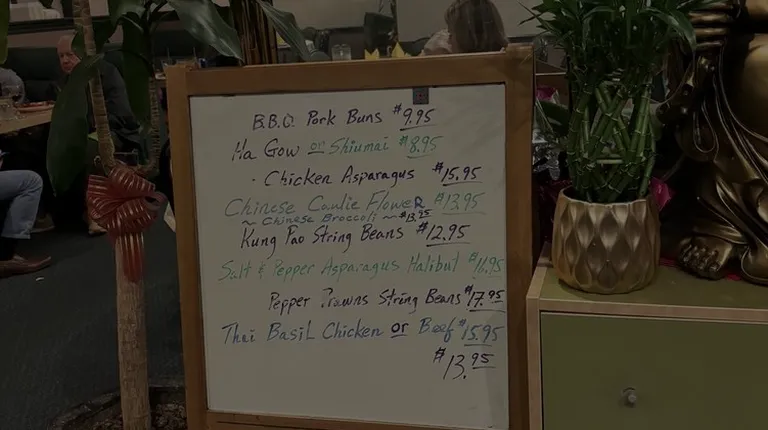 B.B.Q. Pork Buns $9.95
Ha Gow or Shiumai $8.95
· Chicken Asparagus $15.95
Chinese Caulie Flower $13.95
~ Chinese Broccoli ~ $13.95
Kung Pao String Beans $12.95
Salt & Pepper Asparagus Halibut
Pepper Prawns String Beans $17.95
Thai Basil Chicken or Beef $15.95
$13.95